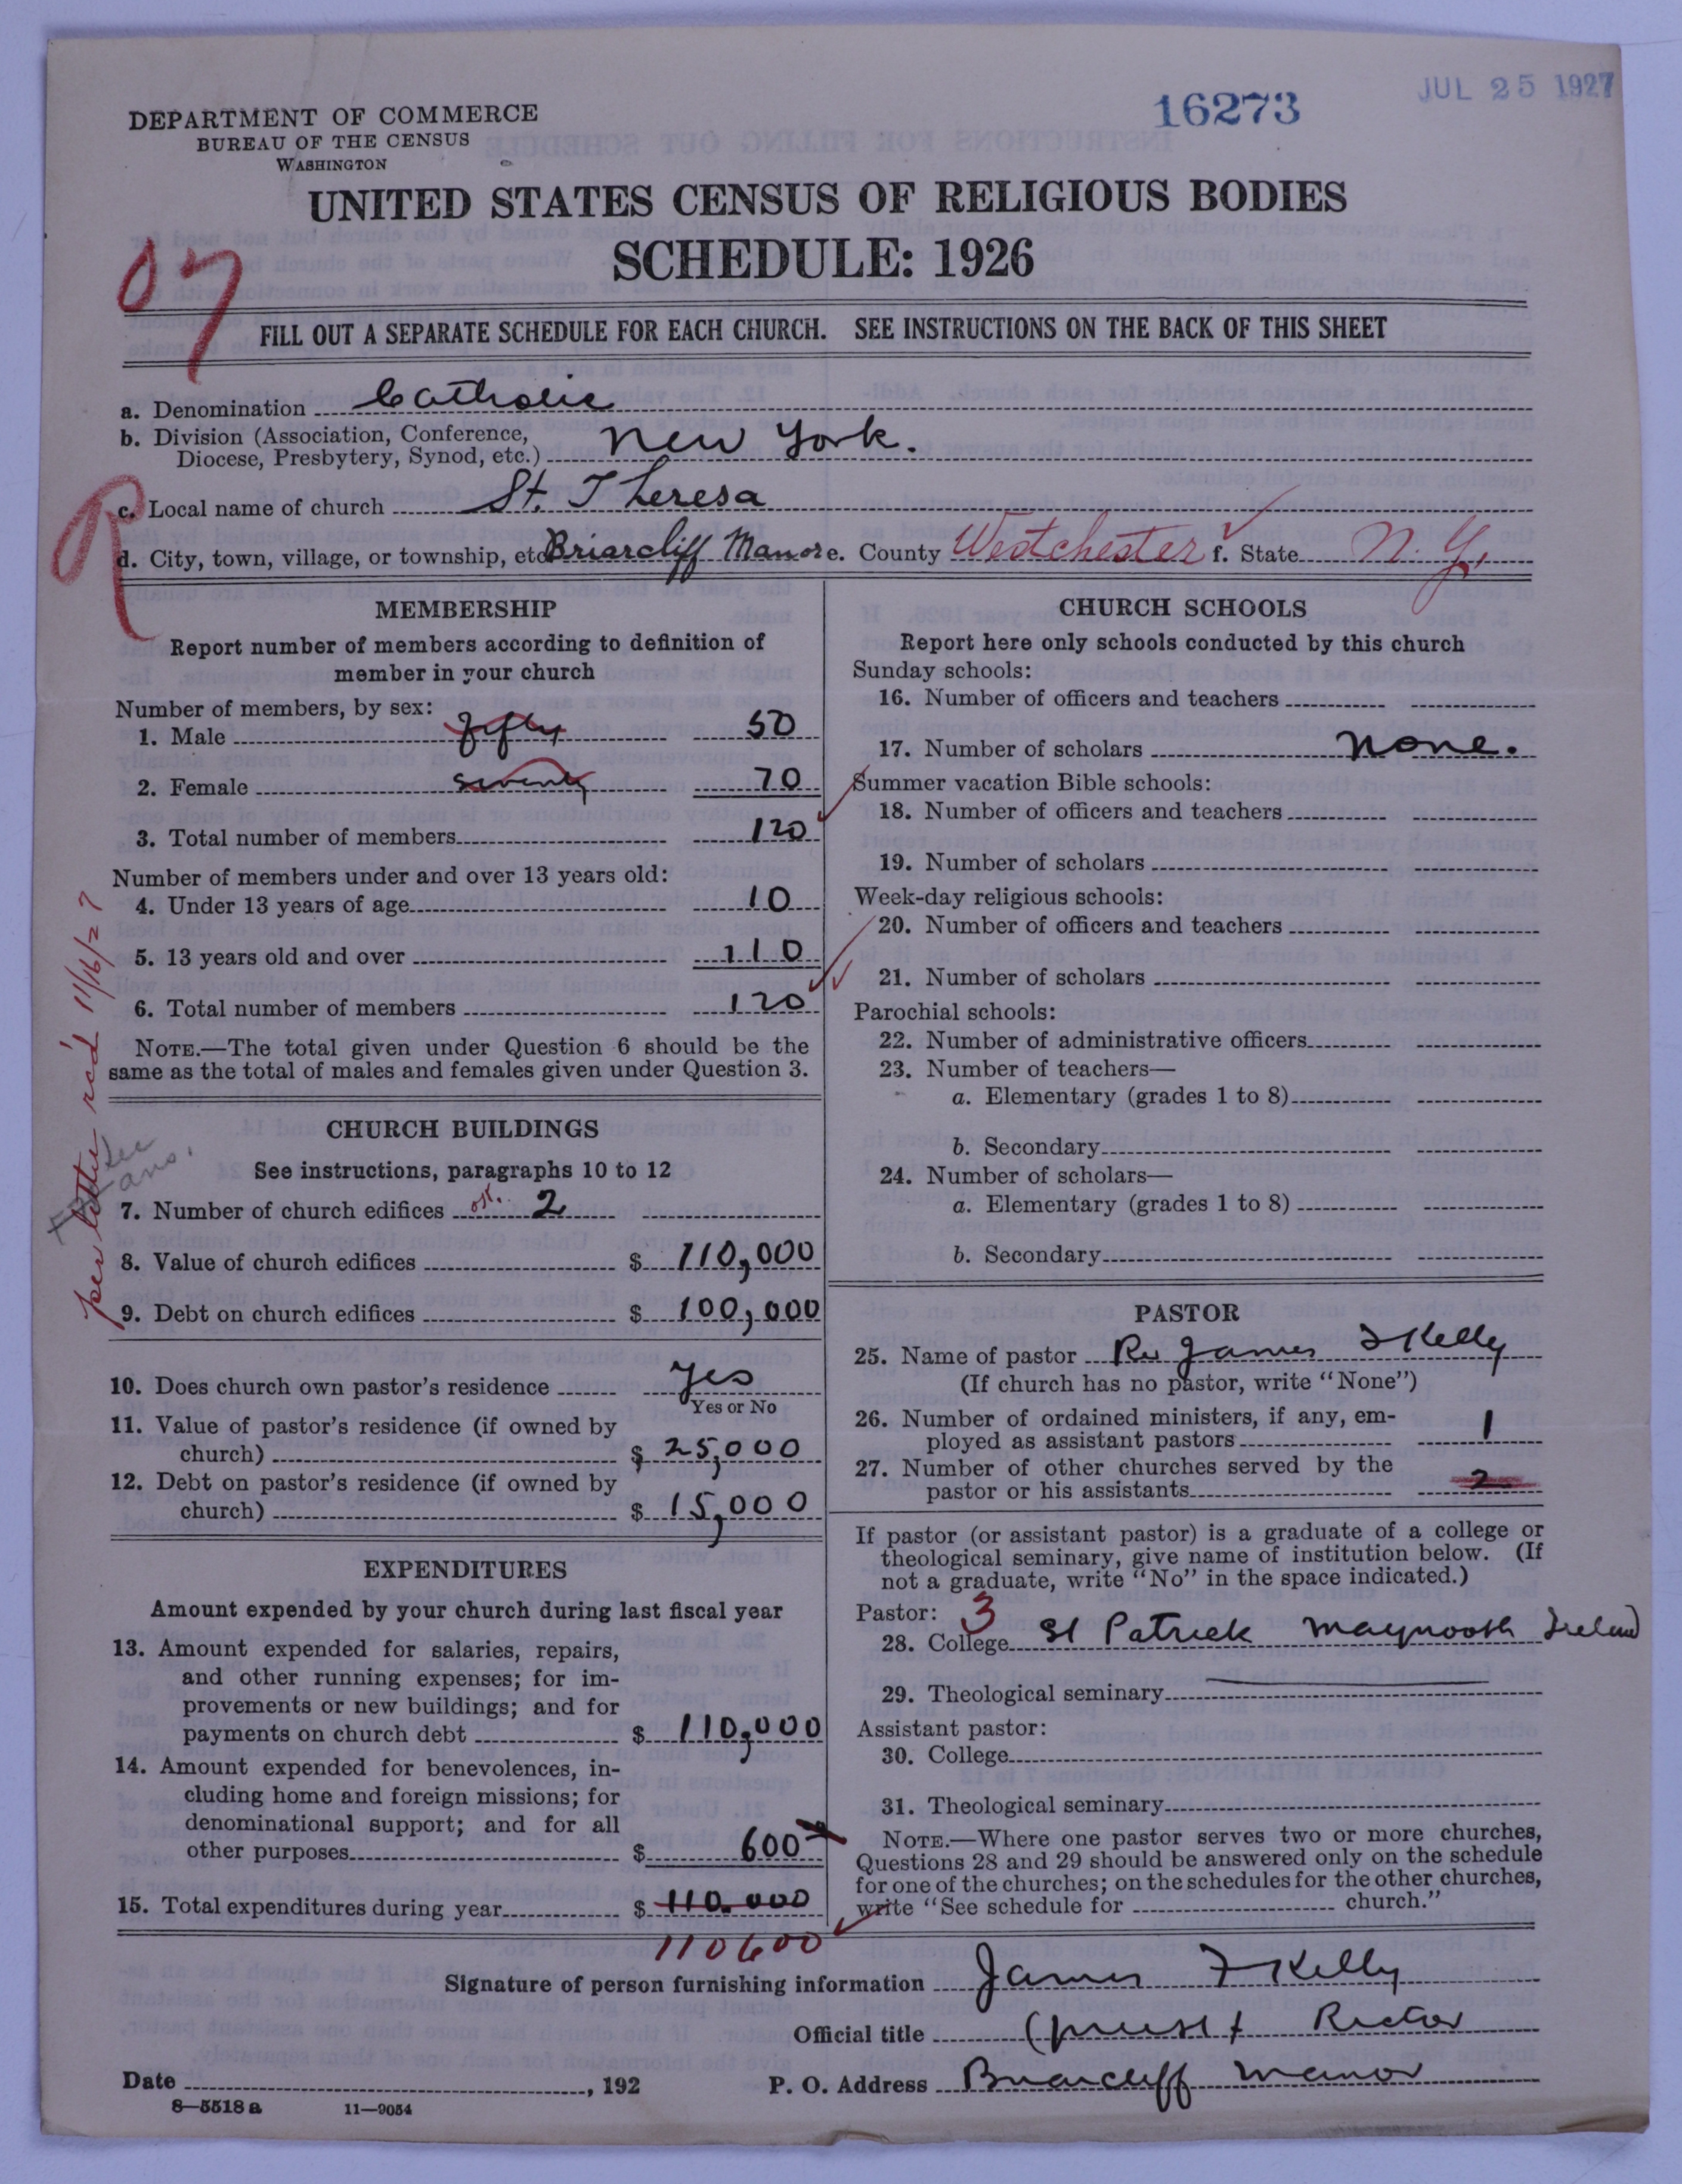 DEPARTMENT OF COMMERCE
BUREAU OF THE CENSUS
WASHINGTON
16273
JUL 25 1927
UNITED STATES CENSUS OF RELIGIOUS BODIES
SCHEDULE: 1926
07
FILL OUT A SEPARATE SCHEDULE FOR EACH CHURCH. SEE INSTRUCTIONS ON THE BACK OF THIS SHEET
a. Denomination Catholic
b. Division (Association, Conference,
Diocese, Presbytery, Synod, etc.) New York.
c. Local name of church St. Theresa
d. City, town, village, or township, etc. Briarcliff Manor e. County Westchester f. State N. Y.
MEMBERSHIP
Report number of members according to definition of
member in your church
Number of members, by sex:
1. Male fifty 50
2. Female seventy 70
3. Total number of members 120
Number of members under and over 13 years old:
4. Under 13 years of age 10
5. 13 years old and over 110
6. Total number of members 120
NOTE.—The total given under Question 6 should be the
same as the total of males and females given under Question 3.
per letter rec'd 11/16/27
CHURCH BUILDINGS
See instructions, paragraphs 10 to 12
7. Number of church edifices ok. 2
8. Value of church edifices $ 110,000
9. Debt on church edifices $ 100,000
10. Does church own pastor's residence Yes
Yes or No
11. Value of pastor's residence (if owned by
church) $ 25,000
12. Debt on pastor's residence (if owned by
church) $ 15,000
EXPENDITURES
Amount expended by your church during last fiscal year
13. Amount expended for salaries, repairs,
and other running expenses; for im-
provements or new buildings; and for
payments on church debt $ 110,000
14. Amount expended for benevolences, in-
cluding home and foreign missions; for
denominational support; and for all
other purposes $ 600
15. Total expenditures during year $ 110.000
110600
CHURCH SCHOOLS
Report here only schools conducted by this church
Sunday schools:
16. Number of officers and teachers
17. Number of scholars None.
Summer vacation Bible schools:
18. Number of officers and teachers
19. Number of scholars
Week-day religious schools:
20. Number of officers and teachers
21. Number of scholars
Parochial schools:
22. Number of administrative officers
23. Number of teachers—
a. Elementary (grades 1 to 8)
b. Secondary
24. Number of scholars—
a. Elementary (grades 1 to 8)
b. Secondary
PASTOR
25. Name of pastor Rev James F Kelly
(If church has no pastor, write "None")
26. Number of ordained ministers, if any, em-
ployed as assistant pastors 1
27. Number of other churches served by the
pastor or his assistants 2
If pastor (or assistant pastor) is a graduate of a college or
theological seminary, give name of institution below. (If
not a graduate, write "No" in the space indicated.)
Pastor: 3
28. College St Patrick Maynooth Ireland
29. Theological seminary
Assistant pastor:
30. College
31. Theological seminary
NOTE.—Where one pastor serves two or more churches,
Questions 28 and 29 should be answered only on the schedule
for one of the churches; on the schedules for the other churches,
write "See schedule for church."
Signature of person furnishing information James F Kelly
Official title (priest) Rector
Date , 192 P. O. Address Briarcliff Manor
8—5518 a 11—9054